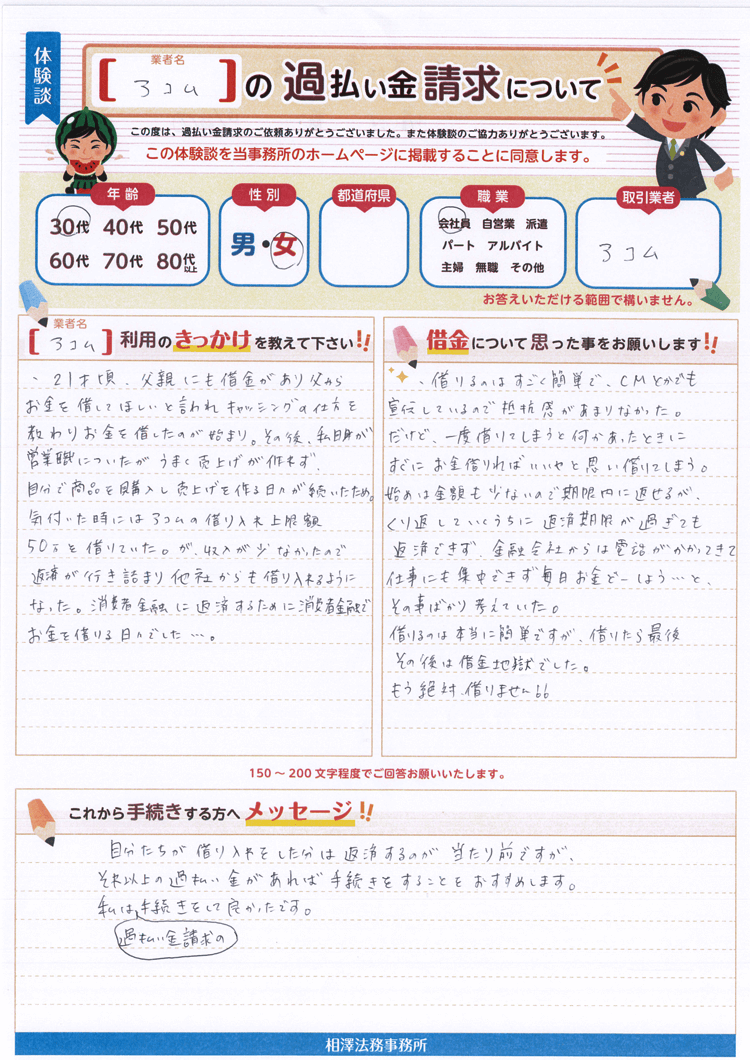 体験談
業者名
[ アコム ] の 過払い金請求について
この度は、過払い金請求のご依頼ありがとうございました。また体験談のご協力ありがとうございます。
この体験談を当事務所のホームページに掲載することに同意します。
年齢
30代 40代 50代
60代 70代 80代以上
性別
男・女
都道府県
職業
会社員 自営業 派遣
パート アルバイト
主婦 無職 その他
取引業者
アコム
お答えいただける範囲で構いません。
業者名
[ アコム ] 利用のきっかけを教えて下さい!!
・21才頃、父親にも借金があり父から
お金を借してほしいと言われキャッシングの仕方を
教わりお金を借したのが始まり。その後、私自身が
営業職についたがうまく売上げが作れず、
自分で商品を購入し売上げを作る日々が続いたため。
気付いた時にはアコムの借り入れ上限額
50万を借りていた。が、収入が少なかったので
返済が行き詰まり他社からも借り入れるように
なった。消費者金融に返済するために消費者金融で
お金を借りる日々でした…。
借金について思った事をお願いします!!
・借りるのはすごく簡単で、CMとかでも
宣伝しているので抵抗感があまりなかった。
だけど、一度借りてしまうと何かあったときに
すぐにお金借りればいいやと思い借りてしまう。
始めは金額も少ないので期限内に返せるが、
くり返していくうちに返済期限が過ぎても
返済できず、金融会社からは電話がかかってきて
仕事にも集中できず毎日お金どーしよう…と、
その事ばかり考えていた。
借りるのは本当に簡単ですが、借りたら最後
その後は借金地獄でした。
もう絶対、借りません!!
150～200文字程度でご回答お願いいたします。
これから手続きする方へメッセージ!!
自分たちが借り入れをした分は返済するのが当たり前ですが、
それ以上の過払い金があれば手続きをすることをおすすめします。
私は、手続きをして良かったです。
過払い金請求の
相澤法務事務所